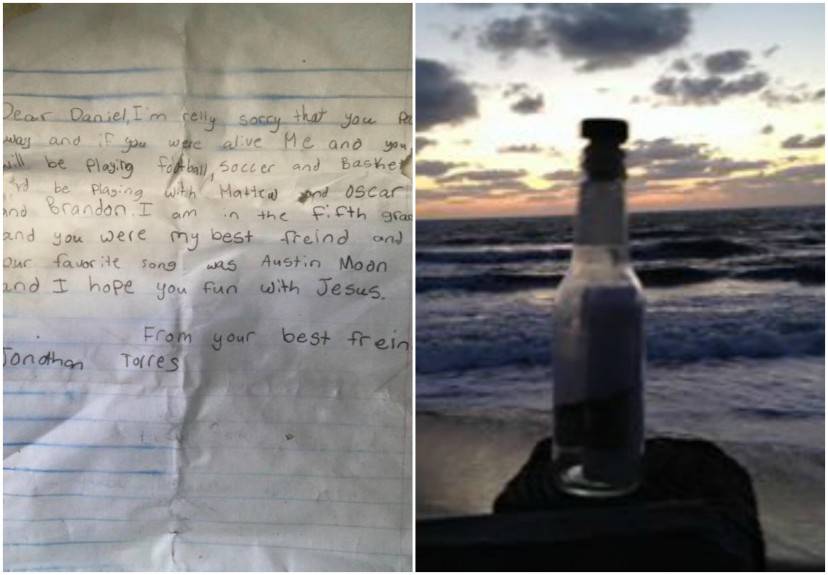 Dear Daniel, I'm relly sorry that you Pa
way and if you were alive Me and you
will be Playing football, soccer and Basket
be Playing with and Oscar
and Brandon. I am in the fifth grad
and you were my best freind and
our favorite song was Austin Moon
and I hope you fun with Jesus.
From your best frein
Jonathan Torres